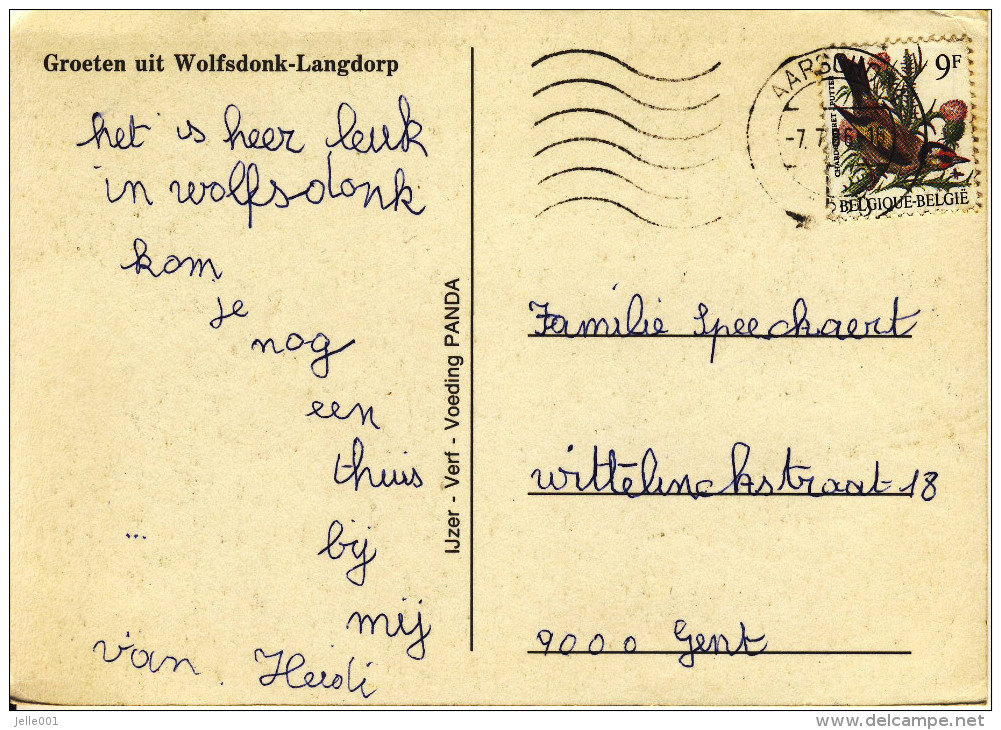 Groeten uit Wolfsdonk-Langdorp
het is heer leuk
in wolfsdonk
kom
je
nog
een
thuis
bij
...
mij
van. Heidi
IJzer - Verf - Voeding PANDA
AARSCHO
-7.7. 6-15
9F
BELGIQUE-BELGIË
Familie Speeckaert
wittelinckstraat 18
9000 Gent
jelle001
delcampe.net